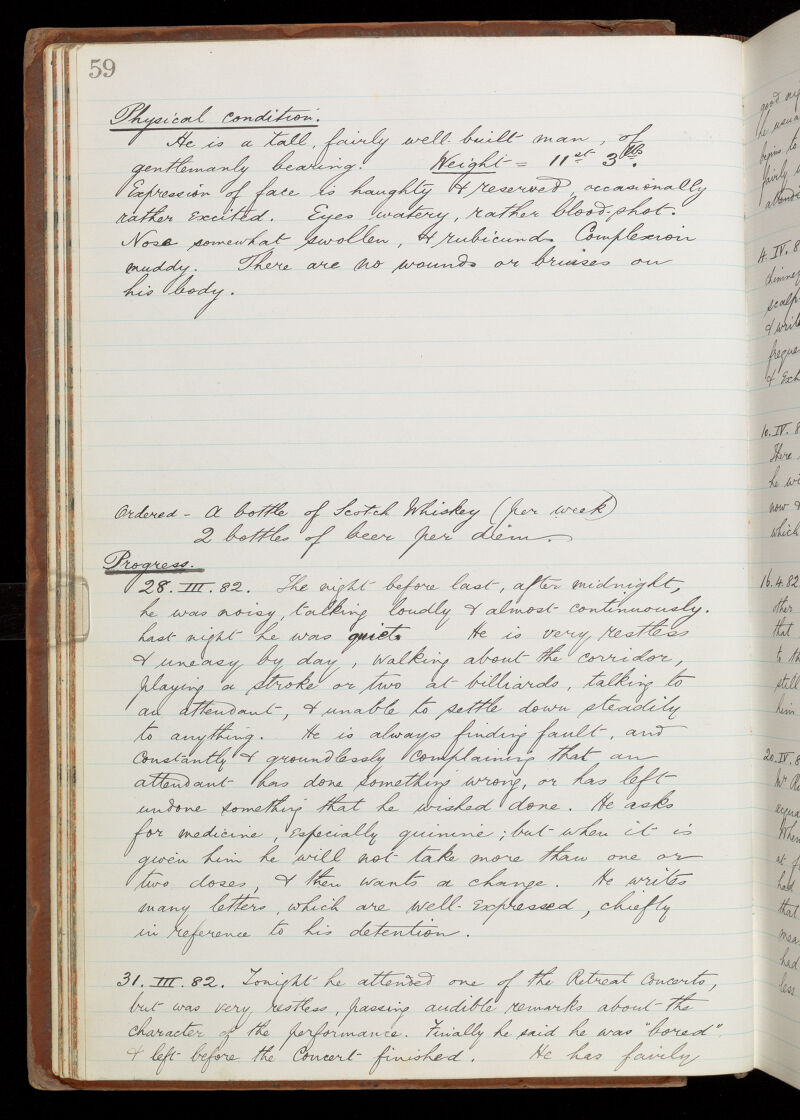 59
Physical condition.
He is a tall, fairly well-built man, of
gentlemanly bearing. Weight = 11 st 3 lbs.
Expression of face is haughty & reserved, occasionally
rather excited. Eyes watery, rather blood-shot.
Nose somewhat swollen, & rubicund. Complexion
muddy. There are no wounds or bruises on
his body.
Ordered - a bottle of Scotch Whiskey (per week)
2 bottles of beer per diem.
Progress.
28. III. 82. The night before last, after midnight,
he was noisy, talking loudly & almost continuously.
Last night he was quiet. He is very restless
& uneasy by day, walking about the corridor,
playing a stroke or two at billiards, talking to
an attendant, & unable to settle down steadily
to anything. He is always finding fault, and
constantly & groundlessly complaining that an
attendant has done something wrong, or has left
undone something that he wished done. He asks
for medicine, especially quinine; but when it is
given him he will not take more than one or
two doses, & then wants a change. He writes
many letters, which are well-expressed, chiefly
in reference to his detention.
31. III. 82. Tonight he attended one of the Retreat Concerts,
but was very restless, passing audible remarks about the
character of the performance. Finally he said he was "bored"
& left before the Concert finished. He has fairly
4. IV. 8
scalp
10. IV. 8
now &
which
16. 4. 82
other
that
still
him
20. IV. 8
had
that
had
less